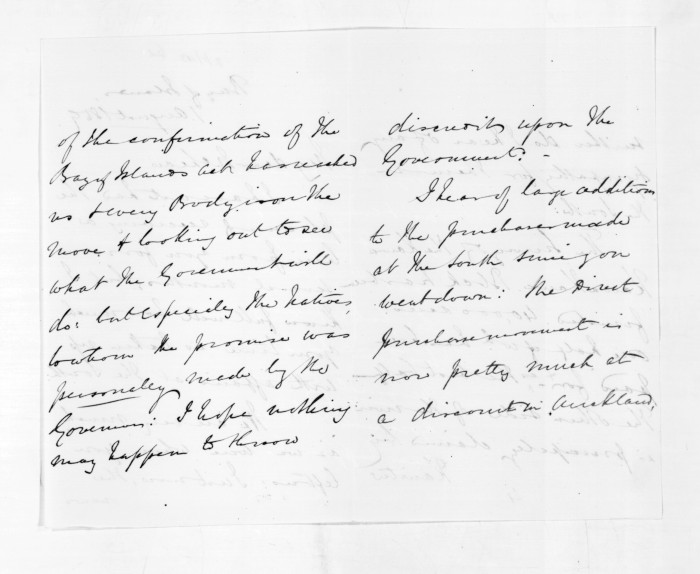 of the confirmation of the
Bay of Islands act has reached
us & every Body is on the
move & looking out to see
what the Government will
do: but Especially the Natives,
to whom the promise was
personaley made by the
Governor: I hope nothing
may happen to throw
discredits upon the
Government? -
I hear of large additions
to the purchases made
at the South since you
went down: The Direct
purchase movement is
now pretty much at
a discount in Auckland,